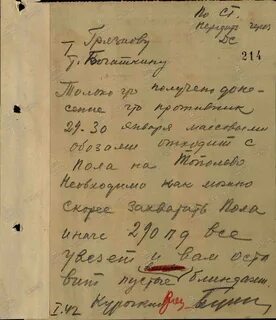 По СТ.
передать через
ДС
214
т Грязнову
т. Богаткину
Только что получено доне-
сение что противник
29-30 января массовыми
обозами отходит с
Пола на Тополево
Необходимо как можно
скорее захватить Пола
иначе 290 пд все
увезет и вам оста
вит пустые блиндажи
Курочкин
I.42